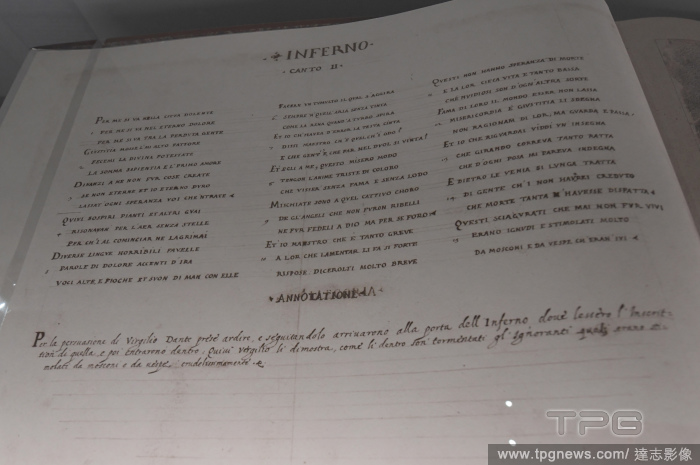 INFERNO
CANTO II
PER ME SI VA NELLA CITTA DOLENTE
PER ME SI VA NEL ETERNO DOLORE
PER ME SI VA TRA LA PERDUTA GENTE
GIUSTITIA MOSSE IL MIO ALTO FATTORE
FECEMI LA DIVINA POTESTATE
LA SOMMA SAPIENTIA E L PRIMO AMORE
DINANZI A ME NON FUR COSE CREATE
SE NON ETERNE ET IO ETERNO DURO
LASSAT OGNI SPERANZA VOI CHE NTRATE
QUIVI SOSPIRI PIANTI ET ALTRI GUAI
RISONAVAN PER L AER SENZA STELLE
PER CH I AL COMINCIAR NE LAGRIMAI
DIVERSE LINGUE HORRIBILI FAVELLE
PAROLE DI DOLORE ACCENTI D IRA
VOCI ALTE E FIOCHE ET SUON DI MAN CON ELLE
FACEAN UN TUMULTO IL QUAL S AGGIRA
SEMPRE N QUELL ARIA SENZA TINTA
COME LA RENA QUANDO TURBO SPIRA
ET IO
DISSI MAESTRO
E CHE GENT È CHE PAR NEL DUOL SI VINTA?
ET EGLI A ME, QUESTO MISERO MODO
TENGON L ANIME TRISTE DI COLORO
CHE VISSER SENZA FAMA E SENZA LODO
MISCHIATE SONO A QUEL CATTIVO CHORO
DE GL ANGELI CHE NON FURON RIBELLI
NE FUR FEDELI A DIO MA PER SE FORO
ET IO MAESTRO CHE E TANTO GREVE
A LOR CHE LAMENTAR LI FA SI FORTE
RISPOSE DICEROLTI MOLTO BREVE
QUESTI NON HANNO SPERANZA DI MORTE
E LA LOR CIECA VITA E TANTO BASSA
CHE NVIDIOSI SON D OGN ALTRA SORTE
FAMA DI LORO IL MONDO ESSER NON LASSA
MISERICORDIA E GIUSTITIA LI SDEGNA
NON RAGIONAM DI LOR, MA GUARDA E PASSA.
ET IO CHE RIGUARDAI VIDDI UN INSEGNA
CHE GIRANDO CORREVA TANTO RATTA
CHE D OGNI POSA MI PAREVA INDEGNA
E DIETRO LE VENIA SI LUNGA TRATTA
DI GENTE CH I NON HAVREI CREDUTO
CHE MORTE TANTA N HAVESSE DISFATTA
QUESTI SCIAGURATI CHE MAI NON FUR VIVI
ERANO IGNUDI E STIMOLATI MOLTO
DA MOSCONI E DA VESPE CH ERAN IVI
ANNOTATIONI
Per la persuasione di Virgilio Dante prese ardire, e seguitandolo arrivareno alla porta dell Inferno dove lessero l'Inscrit
tion di quella, e poi Entrareno dentro. Quivi Virgilio li dimostra, come li dentro son tormentati gl ignoranti quali erano sti
molati da mosconi e da vespe crudelissamente
TPG
www.tpgnews.com/ 達志影像